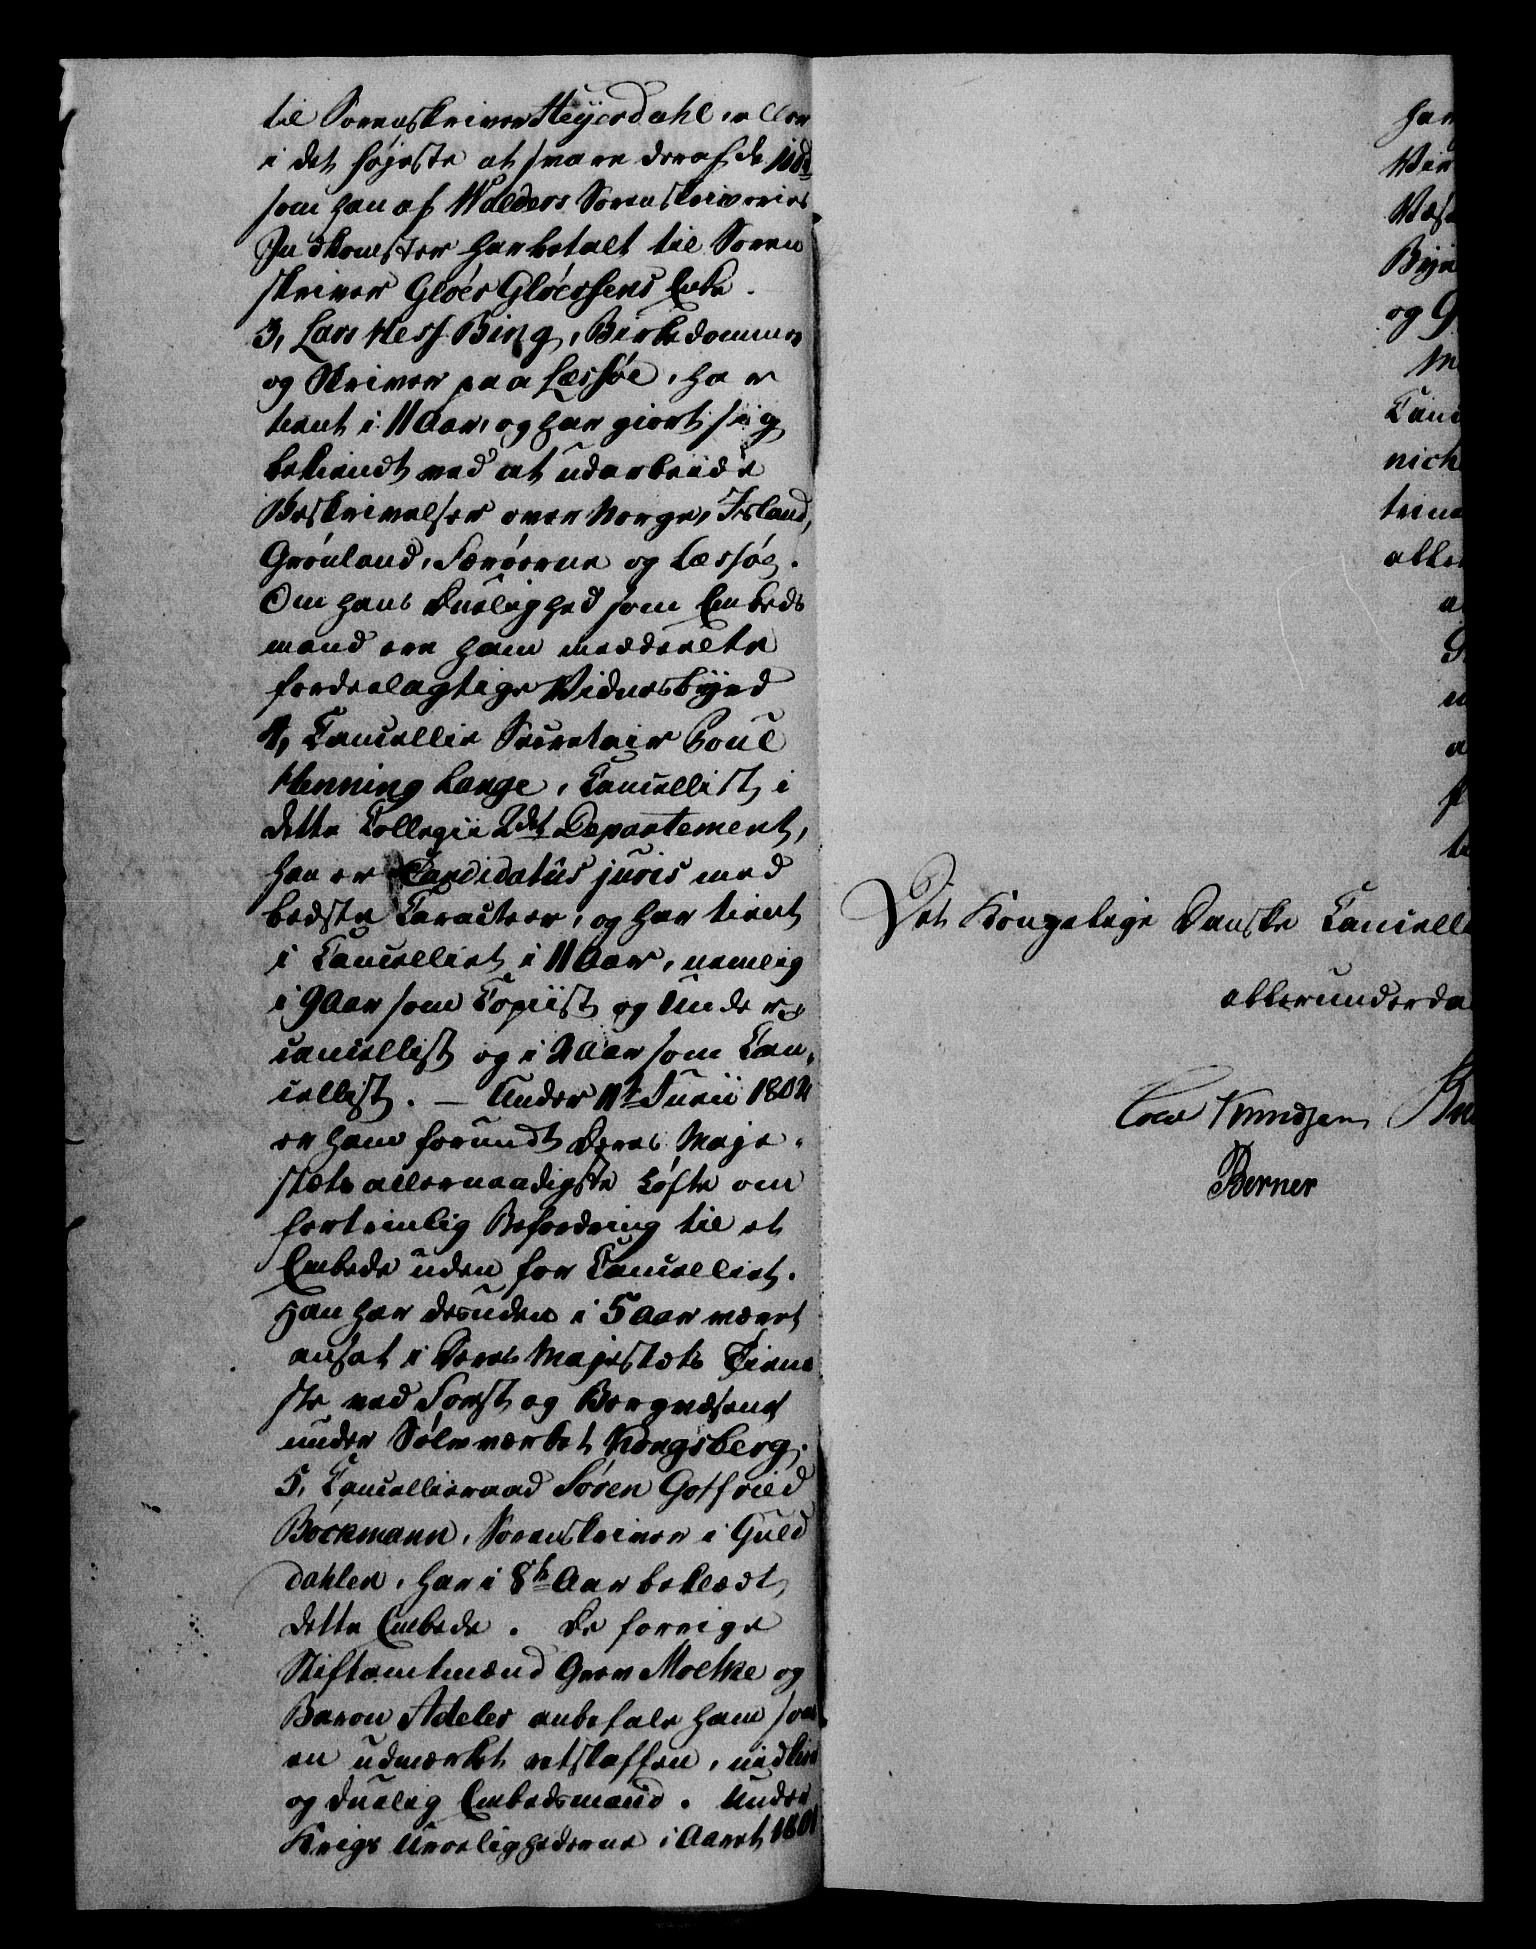 til Sorenskriver Heyerdahl, eller
i det højeste at svare deraf de
som han af Walders Sorenskriveries
Indkomster har betalt til Soren
skriver Gløer Gløersens Enke.
3, Lars Hess Bing, Birkedommer
og Skriver paa Læssøe, har
tient i 11 Aar, og har giort sig
bekiendt ved at udarbeide
Beskrivelser over Norge, Island,
Grønland, Færøerne og Læssøe.
Om hans Duelighed som Embeds
mand ere ham meddeelte
fordeelagtige Vidnesbyrd
4, Cancellie Secretair Poul
Henning Lange, Cancellist i
dette Collegii 2det Departement,
han er Candidatus juris med
bedste Caracteer, og har tient
i Cancelliet i 11 Aar, nemlig
i 9 Aar som Copiist og Under
cancellist og i 2 Aar som Can-
cellist. — Under 11te Junii 1802
er ham forundt Deres Maje-
stæts allernaadigste Løfte om
fortrinlig Befordring til et
Embede uden for Cancelliet.
Han har desuden i 5 Aar været
ansat i Deres Majestæts Tiene
ste ved Forst og Bergvæsenet
under Sølvværket Kongsberg.
5, Cancellieraad Søren Gotfried
Bøckmann, Sorenskriver i Guld
dahlen, har i 8te Aar beklædt
dette Embede. De forrige
Stiftamtmænd Grev Moltke og
Baron Adeler anbefale ham som
en udmærket retskaffen, nidkier
og duelig Embedsmand. Under
Krigs Uroelighederne i Aaret 1801
og
Det Kongelige Danske Cancelli
allerunderda
Knudsen
Berner